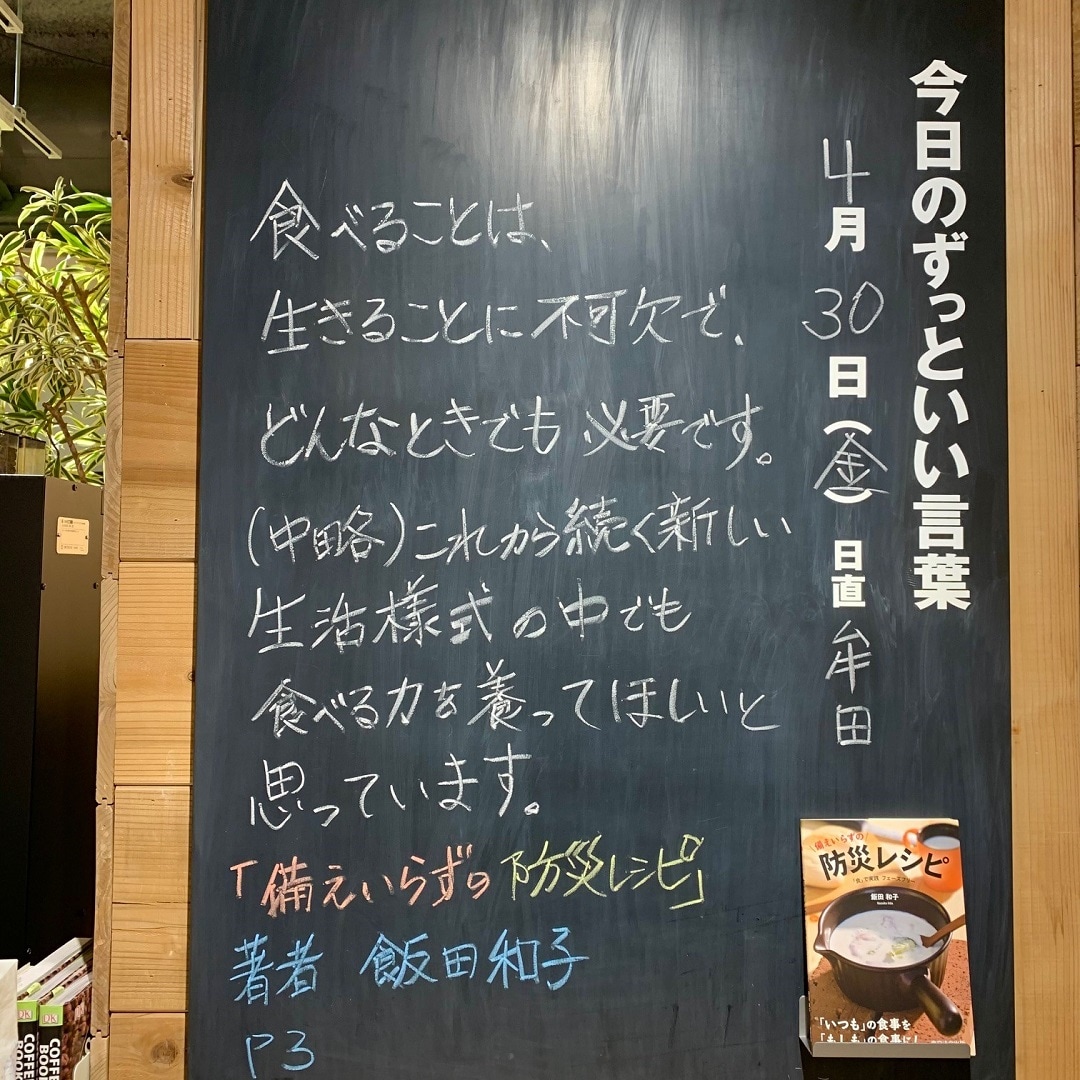 今日のずっといい言葉
4月30日(金) 日直 牟田
食べることは、
生きることに不可欠で、
どんなときでも必要です。
(中略)これから続く新しい
生活様式の中でも
食べる力を養ってほしいと
思っています。
「備えいらずの防災レシピ」
著者 飯田和子
P3
備えいらずの
防災レシピ
「食」で実践 フェーズフリー
飯田 和子
「いつも」の食事を
「もしも」の食事に!
DK
COFFEE
BOOK
DK
COFFEE
BOOK